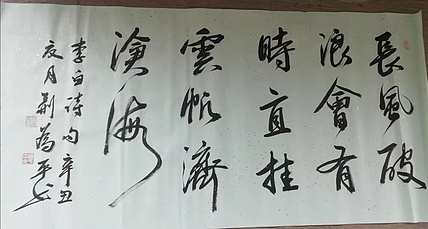 長風破
浪會有
時直挂
雲帆濟
滄海
李白詩句辛丑
夜月荆為平书